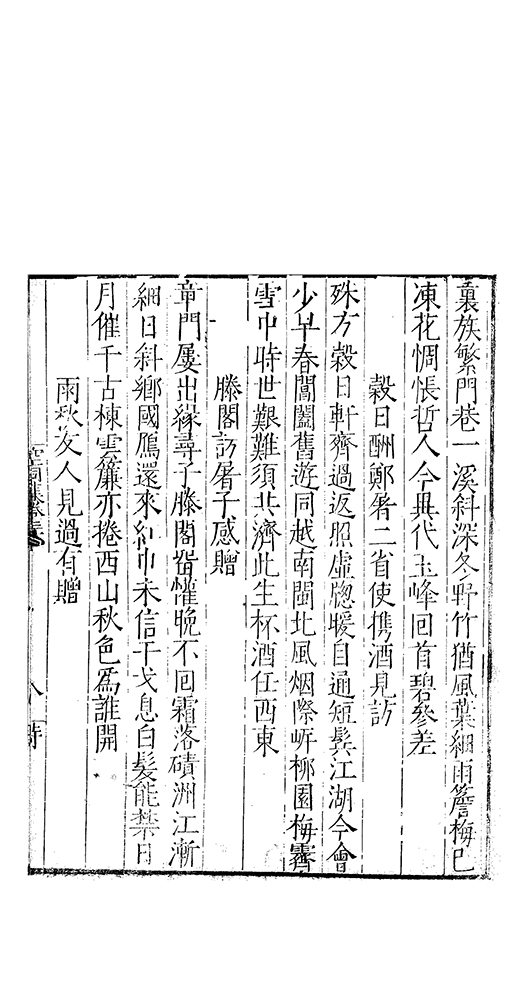 裏族繁門巷一溪斜深冬野竹猶風葉細雨簷梅已
凍花惆悵哲人今異代玉峰回首碧參差
穀日酬鄭屠二省使携酒見訪
殊方榖日軒齊過返照虛牕暖自通短鬂江湖今會
少早春閶闔舊遊同越南閩北風烟際㟁栁園梅霽
雪中時世艱難須共濟此生杯酒任西東
滕閣訪屠子感贈
章門屢出緣尋子滕閣㽞懽晚不回霜落磧洲江漸
細日斜鄉國鴈還來紅巾未信干戈息白髮能禁日
月催千古棟雲簾亦捲西山秋色爲誰開
雨秋友人見過有贈
八
詩